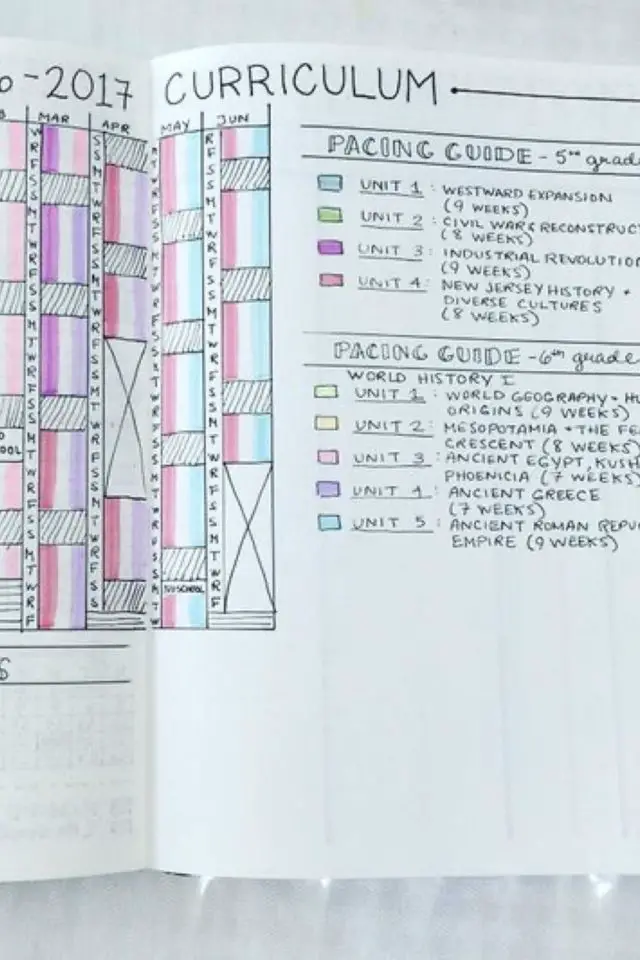 -2017 CURRICULUM
MAR
APR
MAY
JUN
PACING GUIDE - 5TH grade
UNIT 1 : WESTWARD EXPANSION
(9 WEEKS)
UNIT 2 : CIVIL WAR & RECONSTRUCT
(8 WEEKS)
UNIT 3 : INDUSTRIAL REVOLUTION
(9 WEEKS)
UNIT 4: NEW JERSEY HISTORY +
DIVERSE CULTURES
(8 WEEKS)
PACING GUIDE - 6th grade
WORLD HISTORY I
UNIT 1 : WORLD GEOGRAPHY + HU
ORIGINS (9 WEEKS)
UNIT 2 : MESOPOTAMIA + THE FE
CRESCENT (8 WEEKS)
UNIT 3 : ANCIENT EGYPT, KUSH
PHOENICIA (7 WEEKS)
UNIT 4 : ANCIENT GREECE
(7 WEEKS)
UNIT 5 : ANCIENT ROMAN REPU
EMPIRE (9 WEEKS)
NO SCHOOL